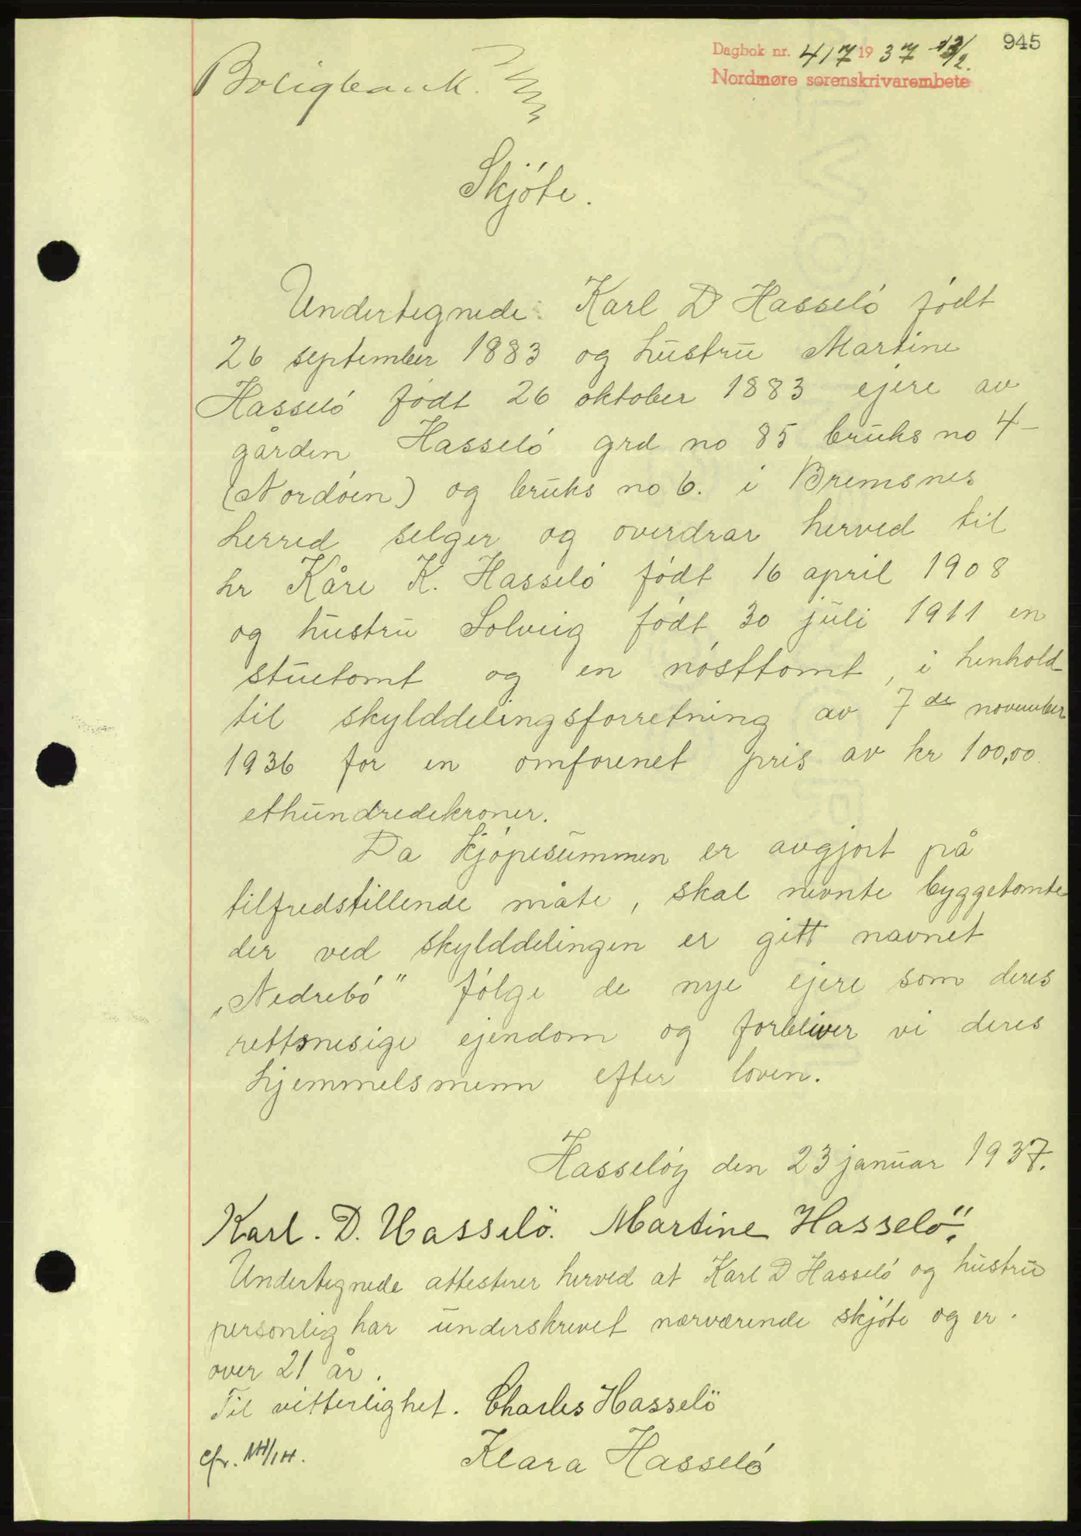 945
Dagbok nr. 417 1937 13/2.
Nordmøre sorenskrivarembete
Boligbank.
Skjóte.
Undertegnede Karl D Hasseló født
26 september 1883 og hustru Martine
Hasseló født 26 oktober 1883 ejere av
gården Hasseló grd no 85 bruks no 4-
(Nordóen) og bruks no 6. i Bremsnes
herred selger og overdrar herved til
hr Kåre K. Hasseló født 16 april 1908
og hustru Solveig født 30 juli 1911 en
stuetomt og en nósttomt, i henhold
til skylddelingsforretning av 7de november
1936 for en omforenet pris av kr 100,00
ethundredekroner.
Da kjópesummen er avgjort på
tilfredstillende måte, skal nevnte byggetomte
der ved skylddelingen er gitt navnet
„Nedrebó" fólge de nye ejere som deres
rettsmesige ejendom og forbliver vi deres
hjemmelsmenn efter loven.
Hasselóy den 23 januar 1937.
Karl. D. Hasselö. Martine Hasselö.
Undertegnede attesterer herved at Karl D Hasseló og hustru
personlig har underskrevet nærværende skjóte og er
over 21 år.
Til vitterlighet. Charles Hasselö
cfr. MH/IH. Klara Hasseló